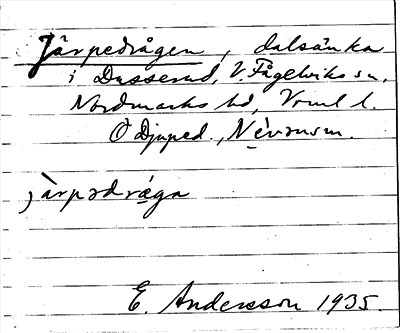 Järpedrågen, dalsänka
i Dusserud, V. Fågelviks sn,
Nordmarks hd, Vrml l.
O Djuped.,
järpədråga
E. Andersson 1935.